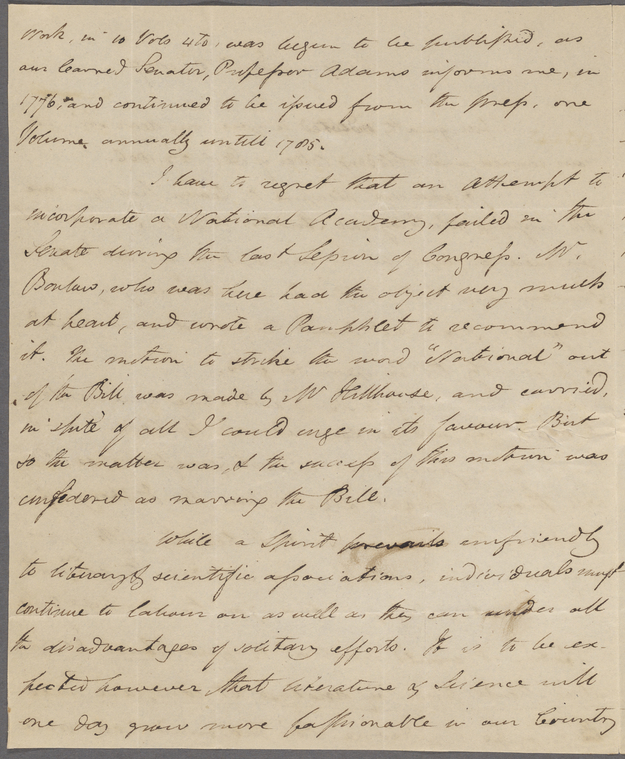 work, in 10 Vols 4to, was begun to be published, as
our learned Senator, Professor Adams informs me, in
1776, and continued to be issued from the press, one
Volume annually untill 1785.
I have to regret that an attempt to
incorporate a National Academy, failed in the
Senate during the last Session of Congress. Mr.
Barlow, who was here had the object very much
at heart, and wrote a Pamphlet to recommend
it. The motion to strike the word "National" out
of the Bill was made by Mr Hillhouse, and carried,
in spite of all I could urge in its favour. But
so the matter was, & the success of this motion was
considered as marring the Bill.
While a Spirit prevails unfriendly
to literary & scientific associations, individuals must
continue to labour on as well as they can under all
the disadvantages of solitary efforts. It is to be ex-
pected however that literature & Science will
one day grow more fashionable in our Country